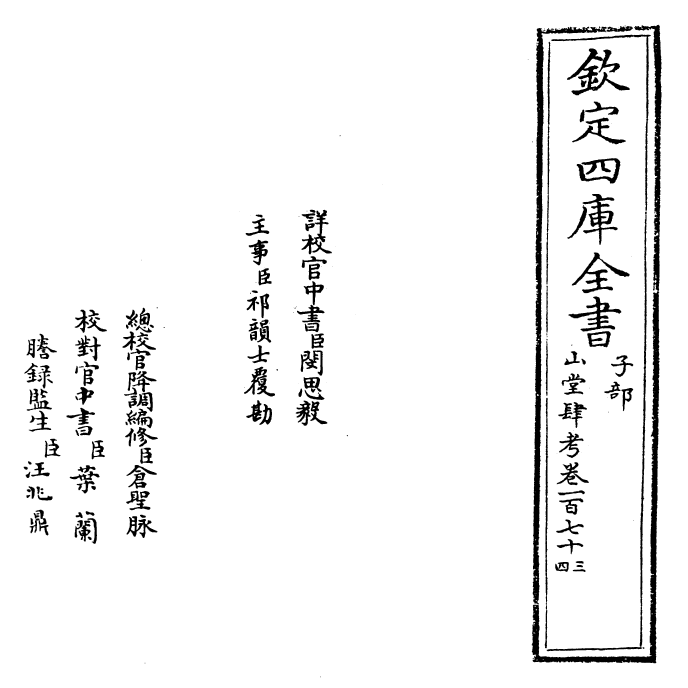 欽定四庫全書
子部
山堂肆考卷一百七十三四
詳校官中書臣閔思毅
主事臣祁韻士覆勘
總校官降調編修臣倉聖脉
校對官中書臣葉蘭
謄錄監生臣汪兆鼎